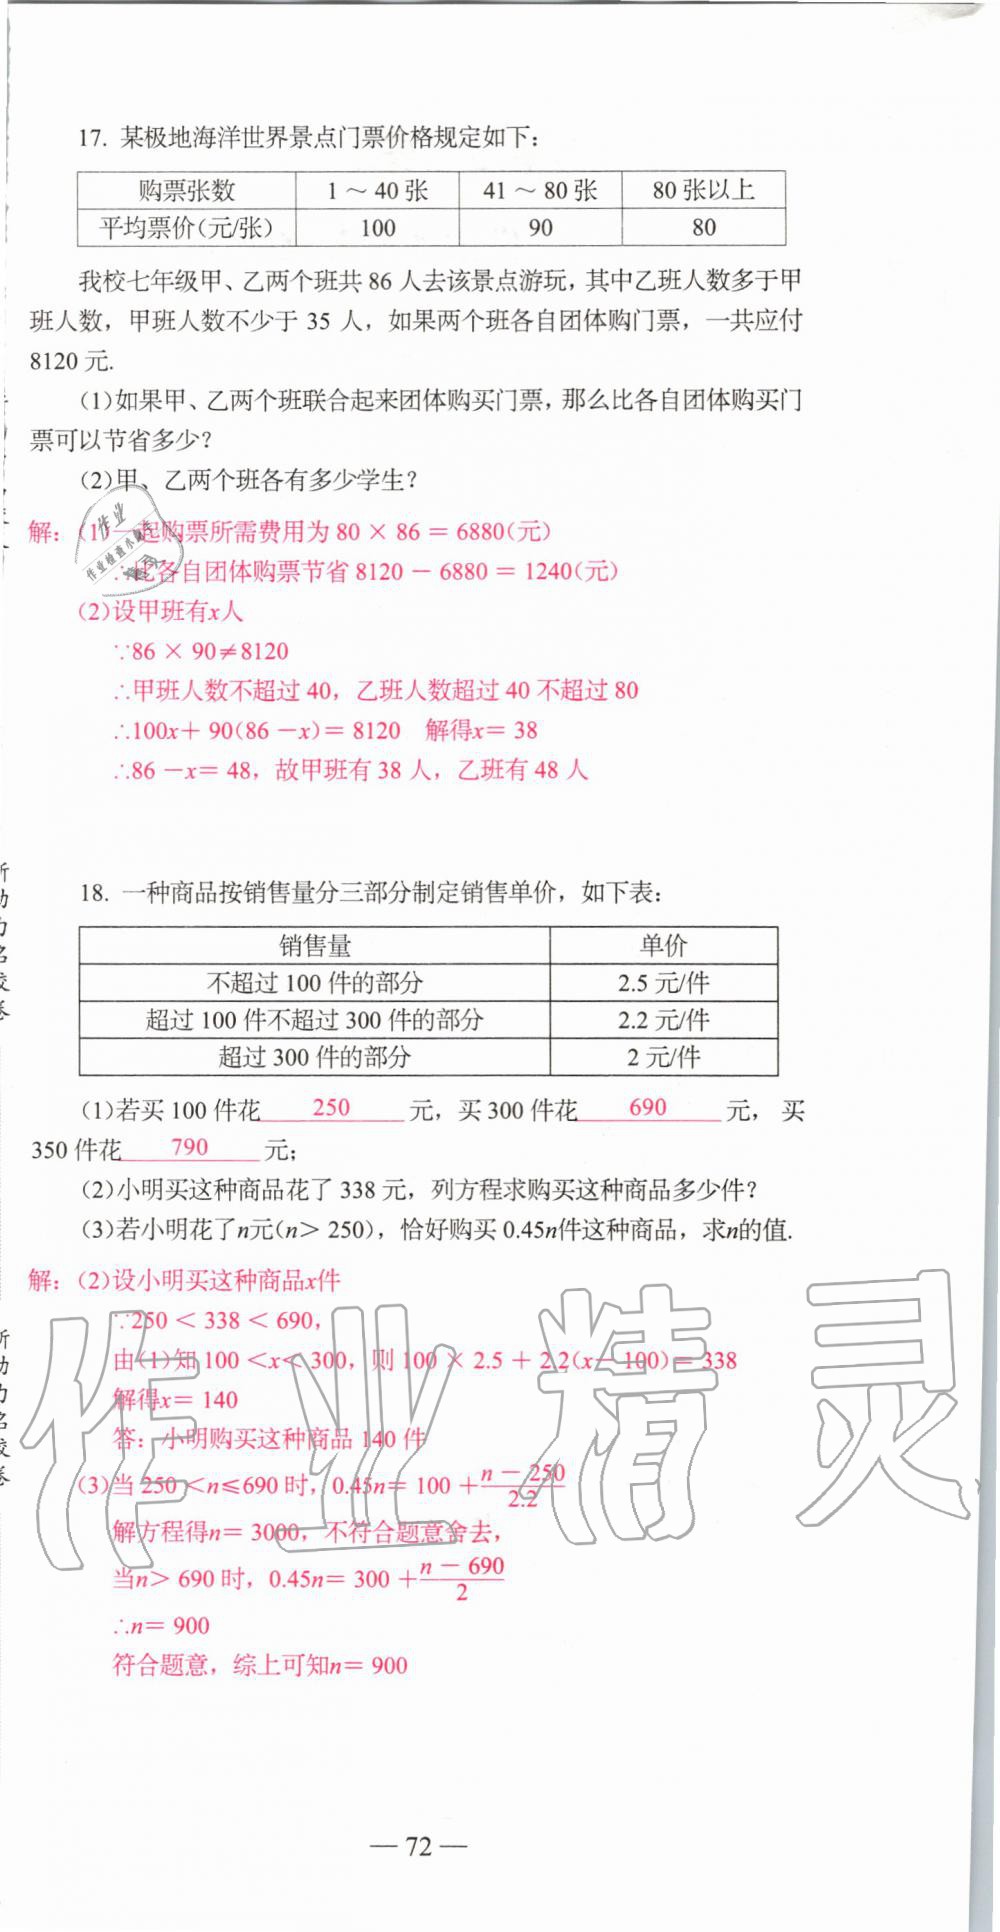 17. 某极地海洋世界景点门票价格规定如下:
购票张数 1～40 张 41～80 张 80 张以上
平均票价(元/张) 100 90 80
我校七年级甲、乙两个班共 86 人去该景点游玩, 其中乙班人数多于甲
班人数, 甲班人数不少于 35 人, 如果两个班各自团体购门票, 一共应付
8120 元.
(1)如果甲、乙两个班联合起来团体购买门票, 那么比各自团体购买门
票可以节省多少?
(2)甲、乙两个班各有多少学生?
解: (1)一起购票所需费用为 80 × 86 = 6880(元)
∴比各自团体购票节省 8120 − 6880 = 1240(元)
(2)设甲班有x人
∵86 × 90≠8120
∴甲班人数不超过 40, 乙班人数超过 40 不超过 80
∴100x+ 90(86 −x)= 8120 解得x= 38
∴86 −x= 48, 故甲班有 38 人, 乙班有 48 人
18. 一种商品按销售量分三部分制定销售单价, 如下表:
销售量 单价
不超过 100 件的部分 2.5 元/件
超过 100 件不超过 300 件的部分 2.2 元/件
超过 300 件的部分 2 元/件
(1)若买 100 件花 250 元, 买 300 件花 690 元, 买
350 件花 790 元;
(2)小明买这种商品花了 338 元, 列方程求购买这种商品多少件?
(3)若小明花了n元(n> 250), 恰好购买 0.45n件这种商品, 求n的值.
解: (2)设小明买这种商品x件
∵250 < 338 < 690,
由(1)知 100 <x< 300, 则 100 × 2.5 + 2.2(x− 100)= 338
解得x= 140
答: 小明购买这种商品 140 件
(3)当 250 <n≤690 时, 0.45n= 100 + (n − 250)/2.2
解方程得n= 3000, 不符合题意舍去,
当n> 690 时, 0.45n= 300 + (n − 690)/2
∴n= 900
符合题意, 综上可知n= 900
作业精灵
— 72 —